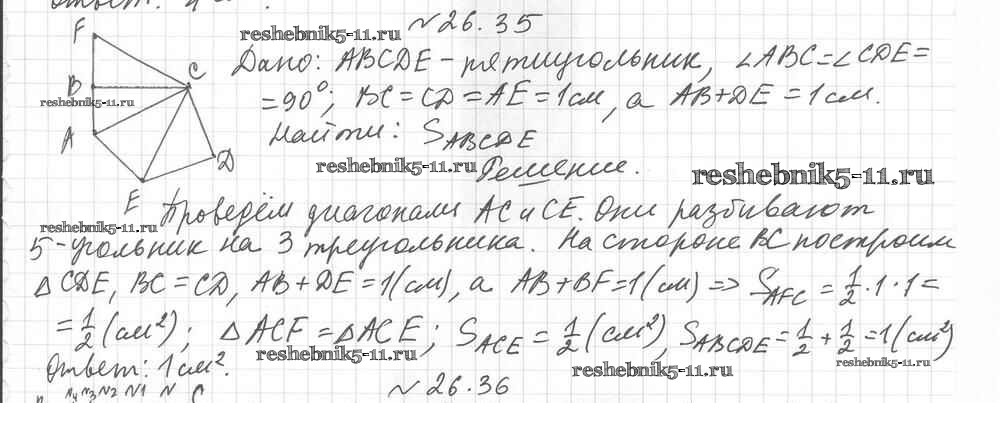 Ответ: 4 см².
N 26.35
reshebnik5-11.ru
F
B
C
A
D
E
Дано: ABCDE – пятиугольник, ∠ABC=∠CDE=
=90°; BC=CD=AE=1см, а AB+DE=1см.
Найти: S_ABCDE
reshebnik5-11.ru
reshebnik5-11.ru
Решение.
reshebnik5-11.ru
Проведём диагонали AC и CE. Они разбивают
reshebnik5-11.ru
5-угольник на 3 треугольника. На стороне BC построим
△CDE, BC=CD, AB+DE=1(см), а AB+BF=1(см) ⇒ S_AFC = 1/2·1·1=
=1/2(см²); △ACF=△ACE; S_ACE=1/2(см²), S_ABCDE=1/2+1/2=1(см²)
reshebnik5-11.ru
Ответ: 1см².
reshebnik5-11.ru
reshebnik5-11.ru
N 26.36